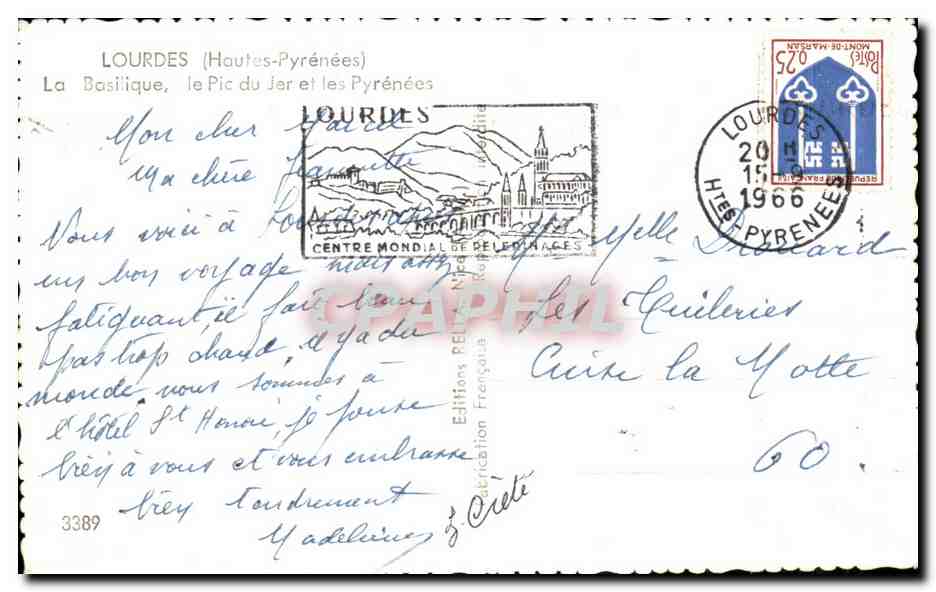 LOURDES (Hautes-Pyrénées)
La Basilique, le Pic du Jer et les Pyrénées
Mon cher
Ma chère Jeannette
Vous voici à
un bon voyage mais assez
fatiguant, il fait beau
pas trop chaud, il y a du
monde nous sommes à
l'hôtel St Honoré, je pense
bien à vous et vous embrasse
bien tendrement
Madeleine
L. Crété
3389
LOURDES
CENTRE MONDIAL DE PELERINAGES
Editions RELLA Nice
Fabrication Française
CPAPHIL
LOURDES
20 H
15-9
1966
HTES-PYRENEES
0,25
POSTES
MONT-DE-MARSAN
REPUBLIQUE FRANCAISE
Mr Melle Drouard
Les Tuileries
Cuise la Motte
60.